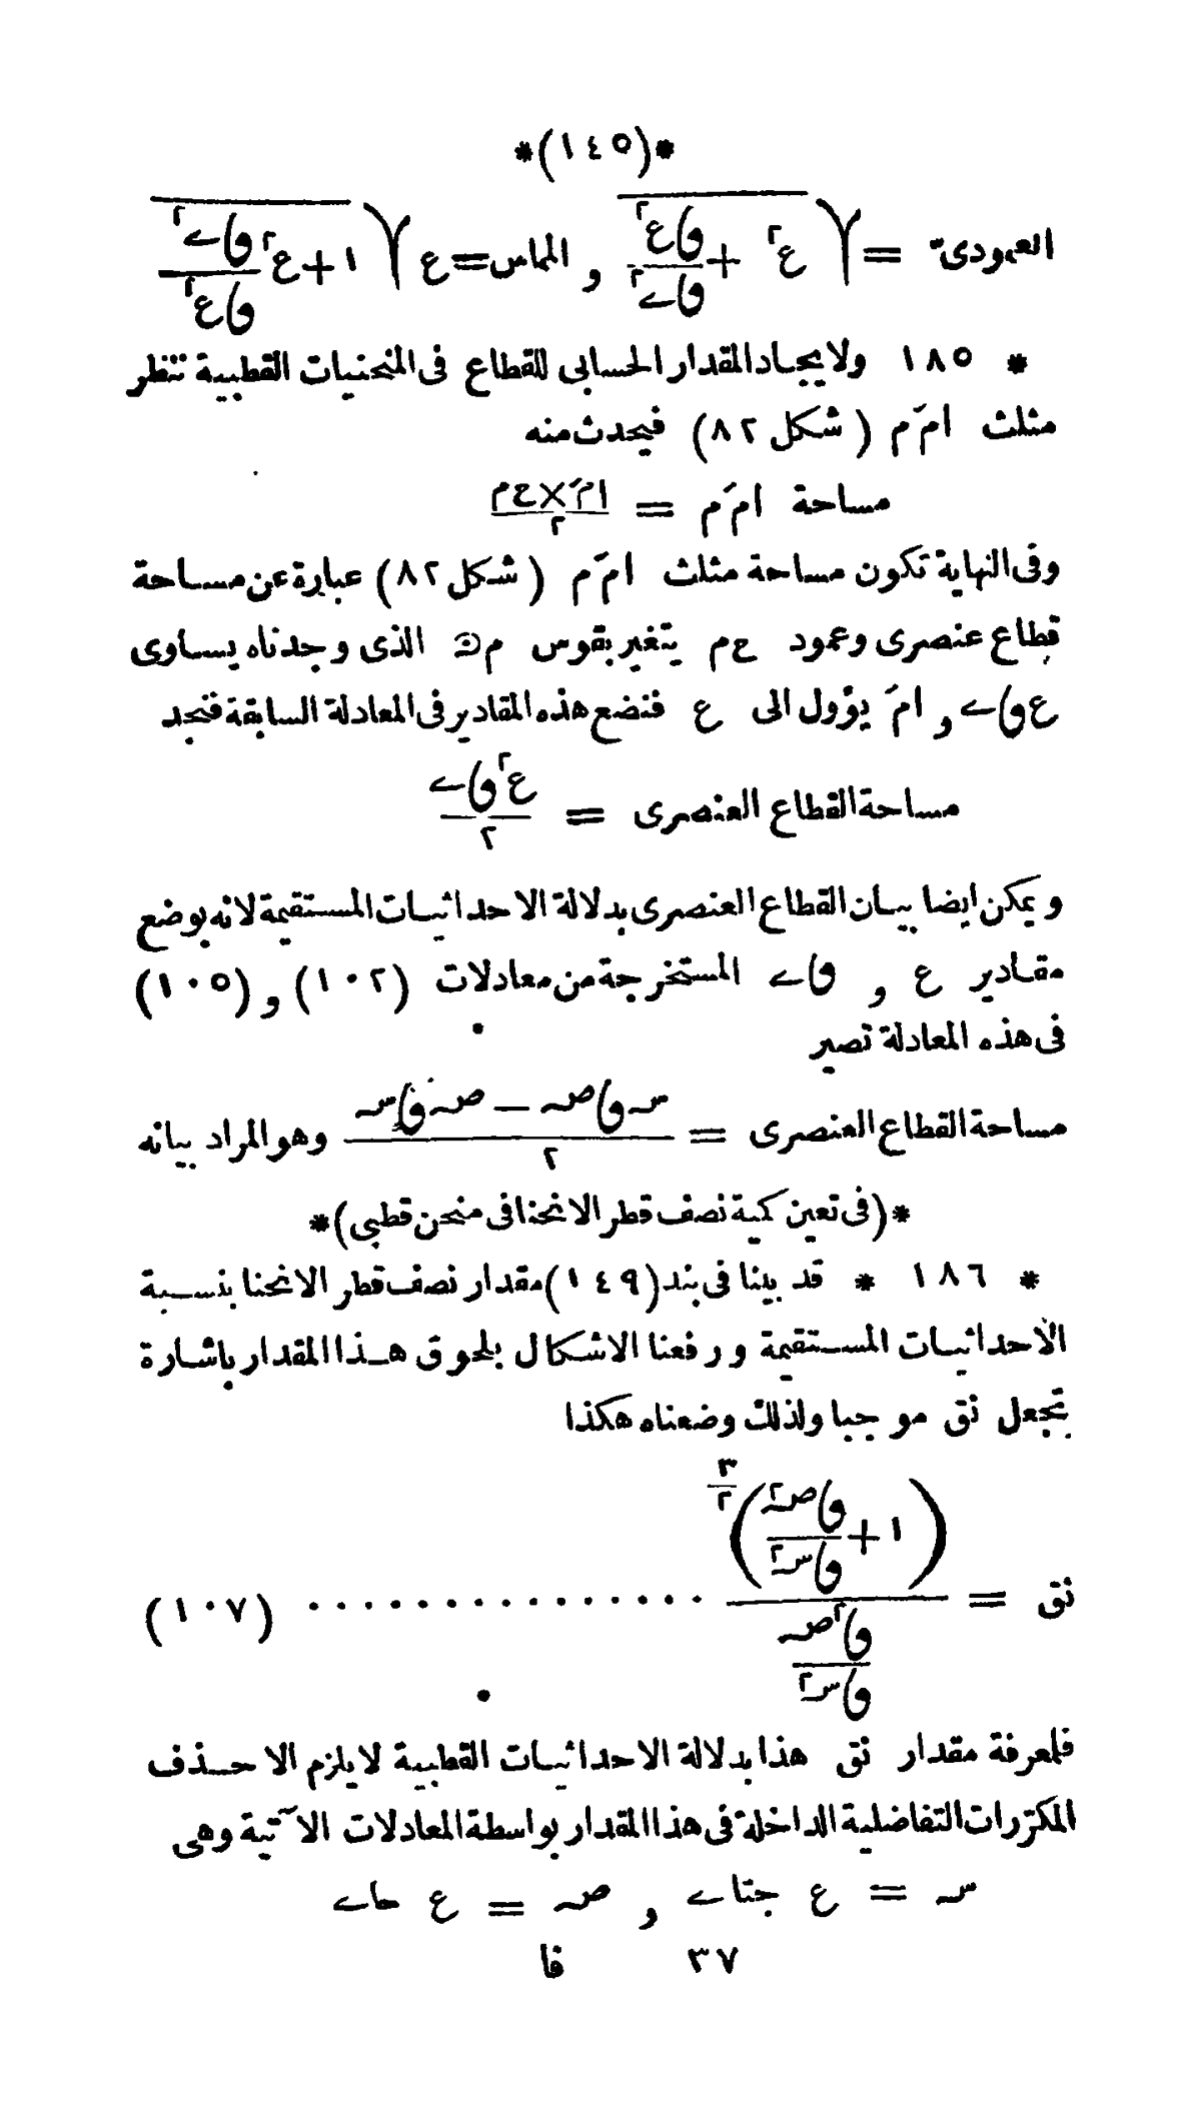 *(١٤٥)*
العمودى = √(ع^٢ + ڡاع^٢/ڡاے^٢) و المماس = ع √(١ + ع^٢ ڡاے^٢/ڡاع^٢)
* ١٨٥ ولايجاد المقدار الحسابى للقطاع فى المنحنيات القطبية تنظر
مثلث امَم (شكل ٨٢) فيحدث منه
مساحة امَم = امَ×حم/٢
وفى النهاية تكون مساحة مثلث امَم (شكل ٨٢) عبارة عن مساحة
قطاع عنصرى وعمود حم يتغير بقوس مں الذى وجدناه يساوى
ع ڡاے و امَ يؤول الى ع فنضع هذه المقادير فى المعادلة السابقة فنجد
مساحة القطاع العنصرى = ع^٢ ڡاے/٢
ويمكن ايضا بيان القطاع العنصرى بدلالة الاحداثيات المستقيمة لانه بوضع
مقادير ع و ڡاے المستخرجة من معادلات (١٠٢) و(١٠٥)
فى هذه المعادلة تصير
مساحة القطاع العنصرى = (سہ ڡاصہ − صہ ڡاسہ)/٢ وهو المراد بيانه
*(فى تعين كمية نصف قطر الانحنا فى منحن قطبى)*
* ١٨٦ * قد بينا فى بند (١٤٩) مقدار نصف قطر الانحنا بنسبة
الاحداثيات المستقيمة ورفعنا الاشكال بلحوق هذا المقدار باشارة
تجعل نق موجبا ولذلك وضعناه هكذا
نق = (١ + ڡاصہ^٢/ڡاسہ^٢)^(٣/٢) / (ڡا^٢صہ/ڡاسہ^٢) ............... (١٠٧)
فلمعرفة مقدار نق هذا بدلالة الاحداثيات القطبية لا يلزم الا حذف
المكررات التفاضلية الداخلة فى هذا المقدار بواسطة المعادلات الآتية وهى
سہ = ع جتاے و صہ = ع حاے
٣٧ فا